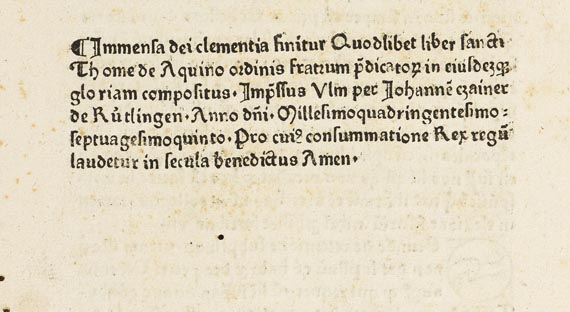 ¶Immensa dei clementia finitur Quodlibet liber sancti
Thome de Aquino ordinis fratrum p̄dicatoꝝ in eiusdemqꝫ
gloriam compositus · Imp̄ssus Ulm per Johannē czainer
de Rùtlingen · Anno dn̄i · Millesimoquadringentesimo⸗
septuagesimoquinto · Pro cuiꝰ consummatione Rex regū
laudetur in secula benedictus Amen ·